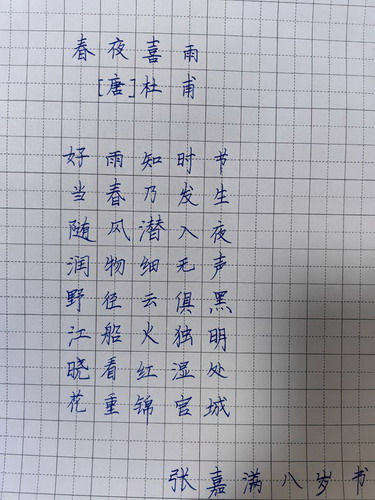 春夜喜雨
[唐]杜甫
好雨知时节
当春乃发生
随风潜入夜
润物细无声
野径云俱黑
江船火独明
晓看红湿处
花重锦官城
张嘉满八岁书